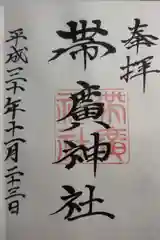 奉拝
帯廣神社
平成三十年十一月二十三日